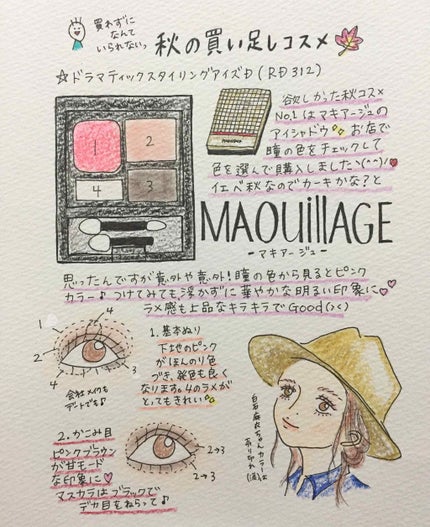 買わずに
なんて
いられないっ
秋の買い足しコスメ
☆ドラマティックスタイリングアイズD(RD312)
1
2
4
3
欲しかった秋コスメ
No.1はマキアージュの
アイシャドウ お店で
瞳の色をチェックして
色を選んで購入しました\(^^)/
イエベ秋なのでカーキかな?と
MAQuillAGE
-マキアージュ-
思ったんですが意外や意外!瞳の色から見るとピンク
カラー♪つけてみても浮かずに華やかな明るい印象に
ラメ感も上品なキラキラでGood(><)
1
4
4
2
2
3
会社メイクも
デートでも♪
1. 基本ぬり
下地のピンク
がほんのり色
づき、発色も良く
なります。4のラメが
とってもきれい
2. かこみ目
ピンクブラウン
が甘モード
な印象に
マスカラはブラックで
デカ目をねらって♪
2→3
2→3
白石麻衣ちゃんカラーは